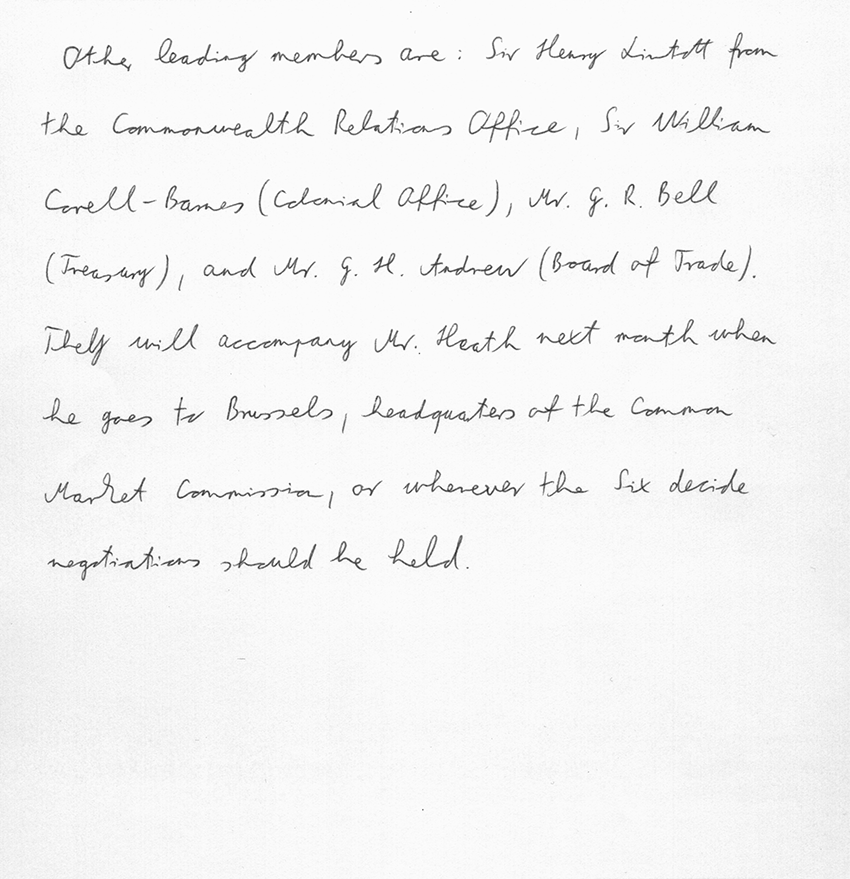 Other leading members are: Sir Henry Lintott from
the Commonwealth Relations Office, Sir William
Gorell-Barnes (Colonial Office), Mr. G. R. Bell
(Treasury), and Mr. G. H. Andrew (Board of Trade).
They will accompany Mr. Heath next month when
he goes to Brussels, headquaters of the Common
Market Commission, or wherever the Six decide
negotiations should be held.